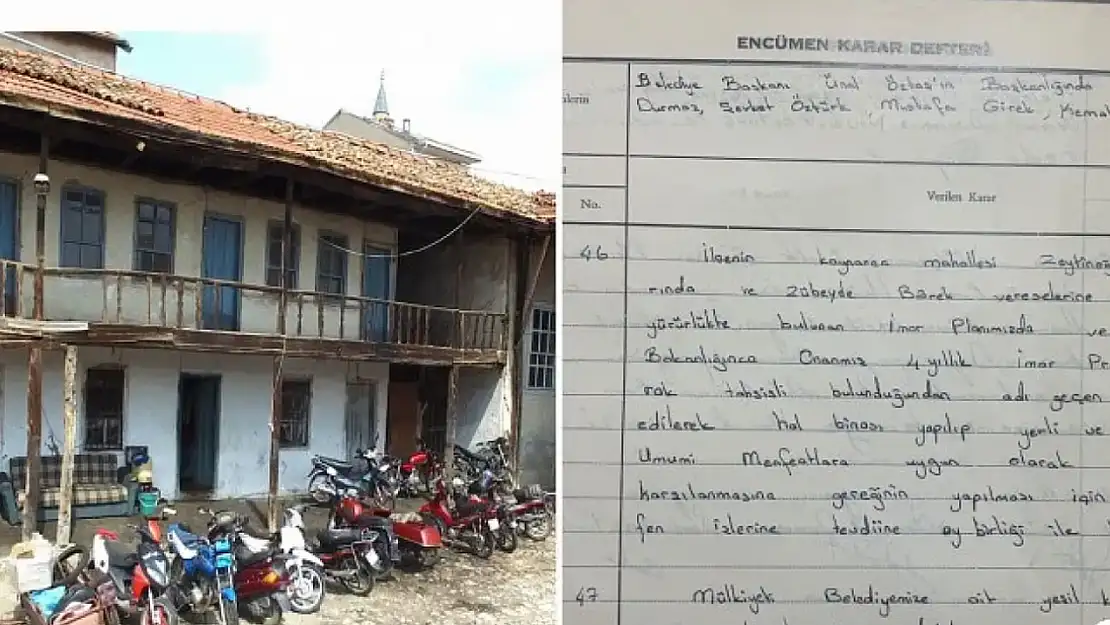 ENCÜMEN KARAR DEFTERİ
Belediye Başkanı Ünal Öztaş'ın Başkanlığında
Durmaz, Şevket Öztürk, Mustafa Girek, Kemal
No.
Verilen Karar
46 İlçenin kaynarca mahallesi
rında ve Zübeyde Barek vereselerine
yürürlükte bulunan İmar Planımızda ve
Bakanlığınca Onanmış 4 yıllık imar Pr
rak tahsisli bulunduğundan adı geçen
edilerek hal binası yapılıp yerli ve
Umumi Menfeatlara uygun olarak
karşılanmasına gereğinin yapılması için
fen işlerine tevdiine oy birliği ile
47 Mülkiyeti Belediyemize ait yeşil